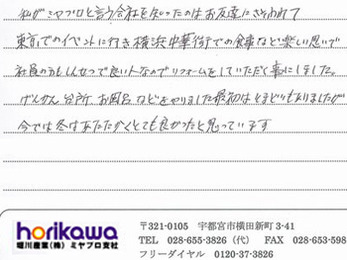 私がミヤプロと言う会社を知ったのはお友達にさそわれて
東京でのイベントに行き横浜中華街での食事など楽しい思いで
社員のもしんせつで良い人なのでリフォームをしていただく事にしました。
げんかん台所、お風呂などをやりました最初はとまどいもありましたが
今では冬はあたたかくとても良かったと思っています
horikawa
堀川産業(株)ミヤプロ支社
〒321-0105 宇都宮市横田新町 3-41
TEL 028-655-3826(代) FAX 028-653-598
フリーダイヤル 0120-37-3826